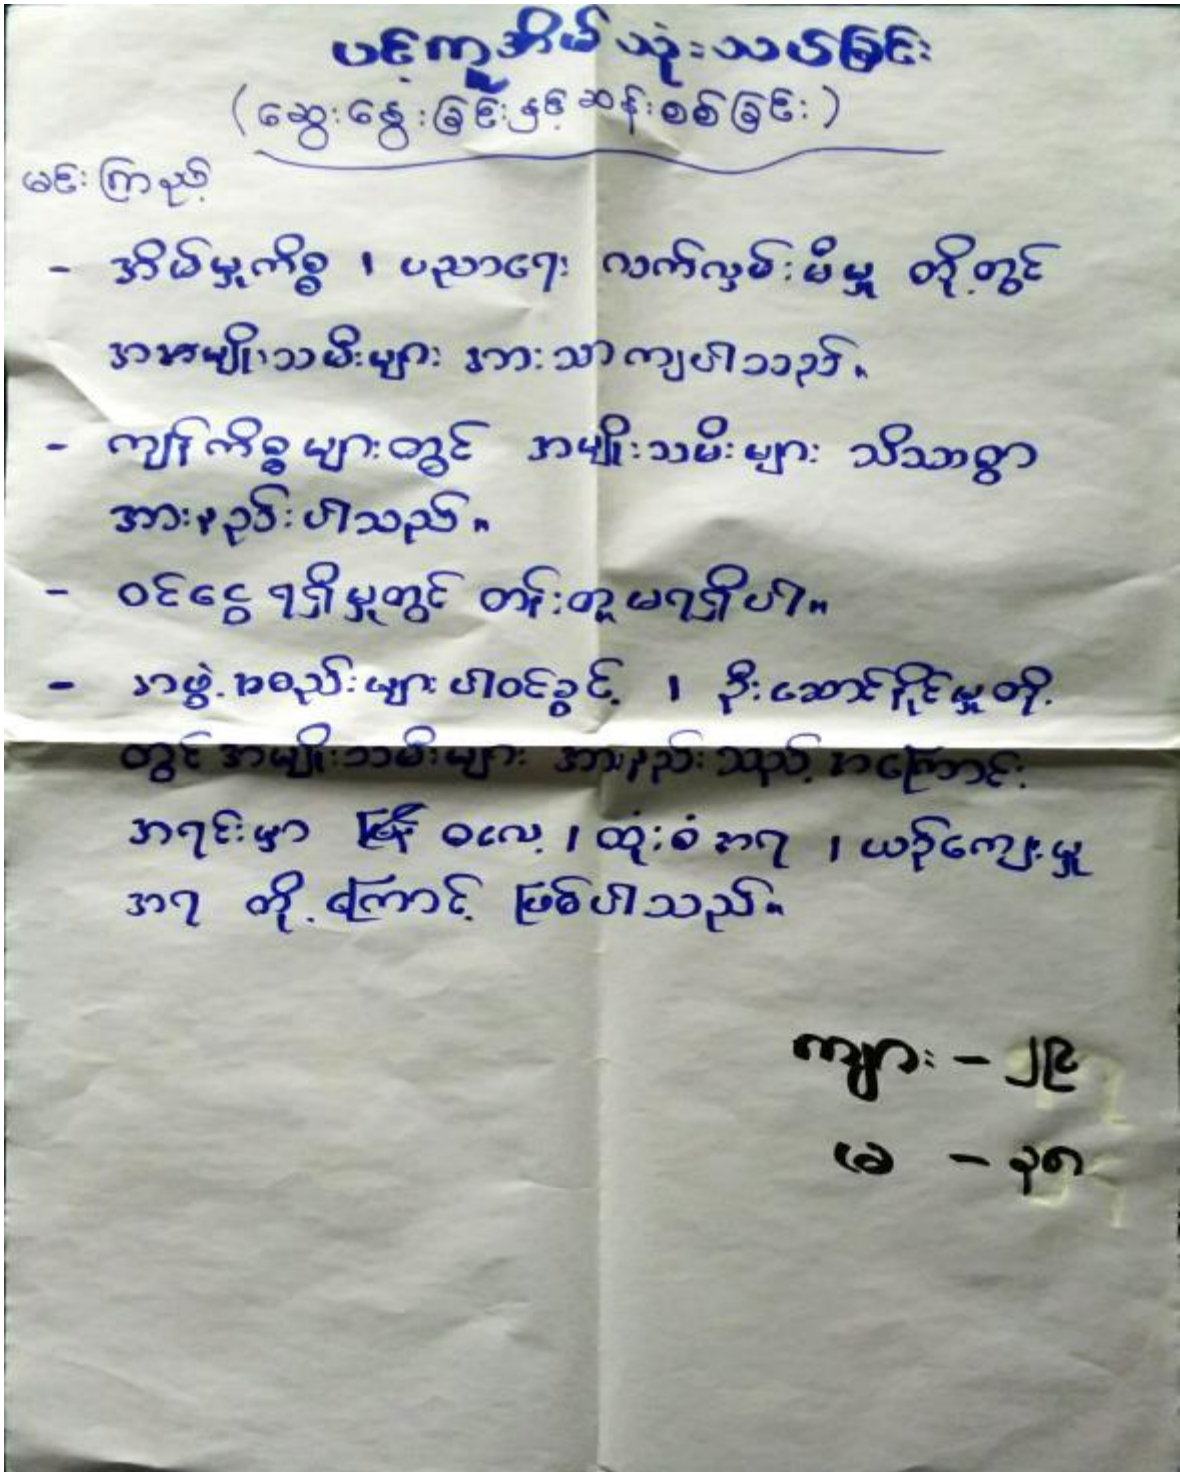 ပင့်ကူအိမ်သုံးသပ်ခြင်း
(ဆွေးနွေးခြင်းနှင့်ဆန်းစစ်ခြင်း)
မင်းကြည့်
- အိမ်မှုကိစ္စ ၊ ပညာရေး လက်လှမ်းမီမှု တို့တွင်
အမျိုးသမီးများ အားသာကျပါသည်။
- ကျန်ကိစ္စများတွင် အမျိုးသမီးများ သိသာစွာ
အားနည်းပါသည်။
- ဝင်ငွေရရှိမှုတွင် တန်းတူမရရှိပါ။
- အဖွဲ့အစည်းများပါဝင်ခွင့် ၊ ဦးဆောင်နိုင်မှုတို့
တွင်အမျိုးသမီးများ အားနည်းသည့်အကြောင်း
အရင်းမှာ ဓလေ့ ၊ ထုံးစံအရ ၊ ယဉ်ကျေးမှု
အရ တို့ကြောင့် ဖြစ်ပါသည်။
ကျား - ၂၉
မ - ၃၈